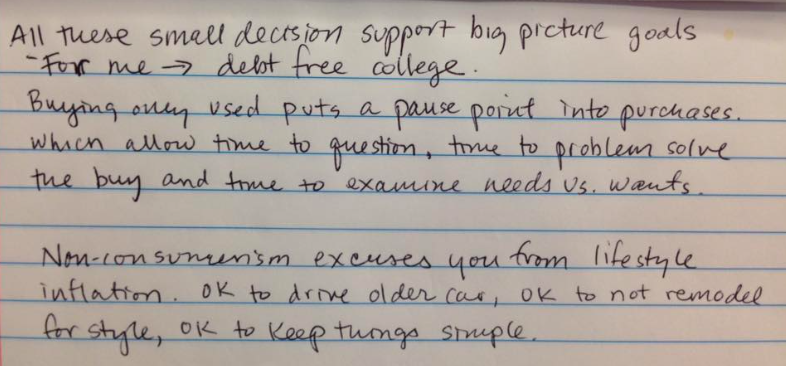 All these small decision support big picture goals
- For me → debt free college.
Buying only used puts a pause point into purchases.
which allow time to question, time to problem solve
the buy and time to examine needs vs. wants.
Non-consumerism excuses you from lifestyle
inflation. OK to drive older car, OK to not remodel
for style, OK to keep things simple.